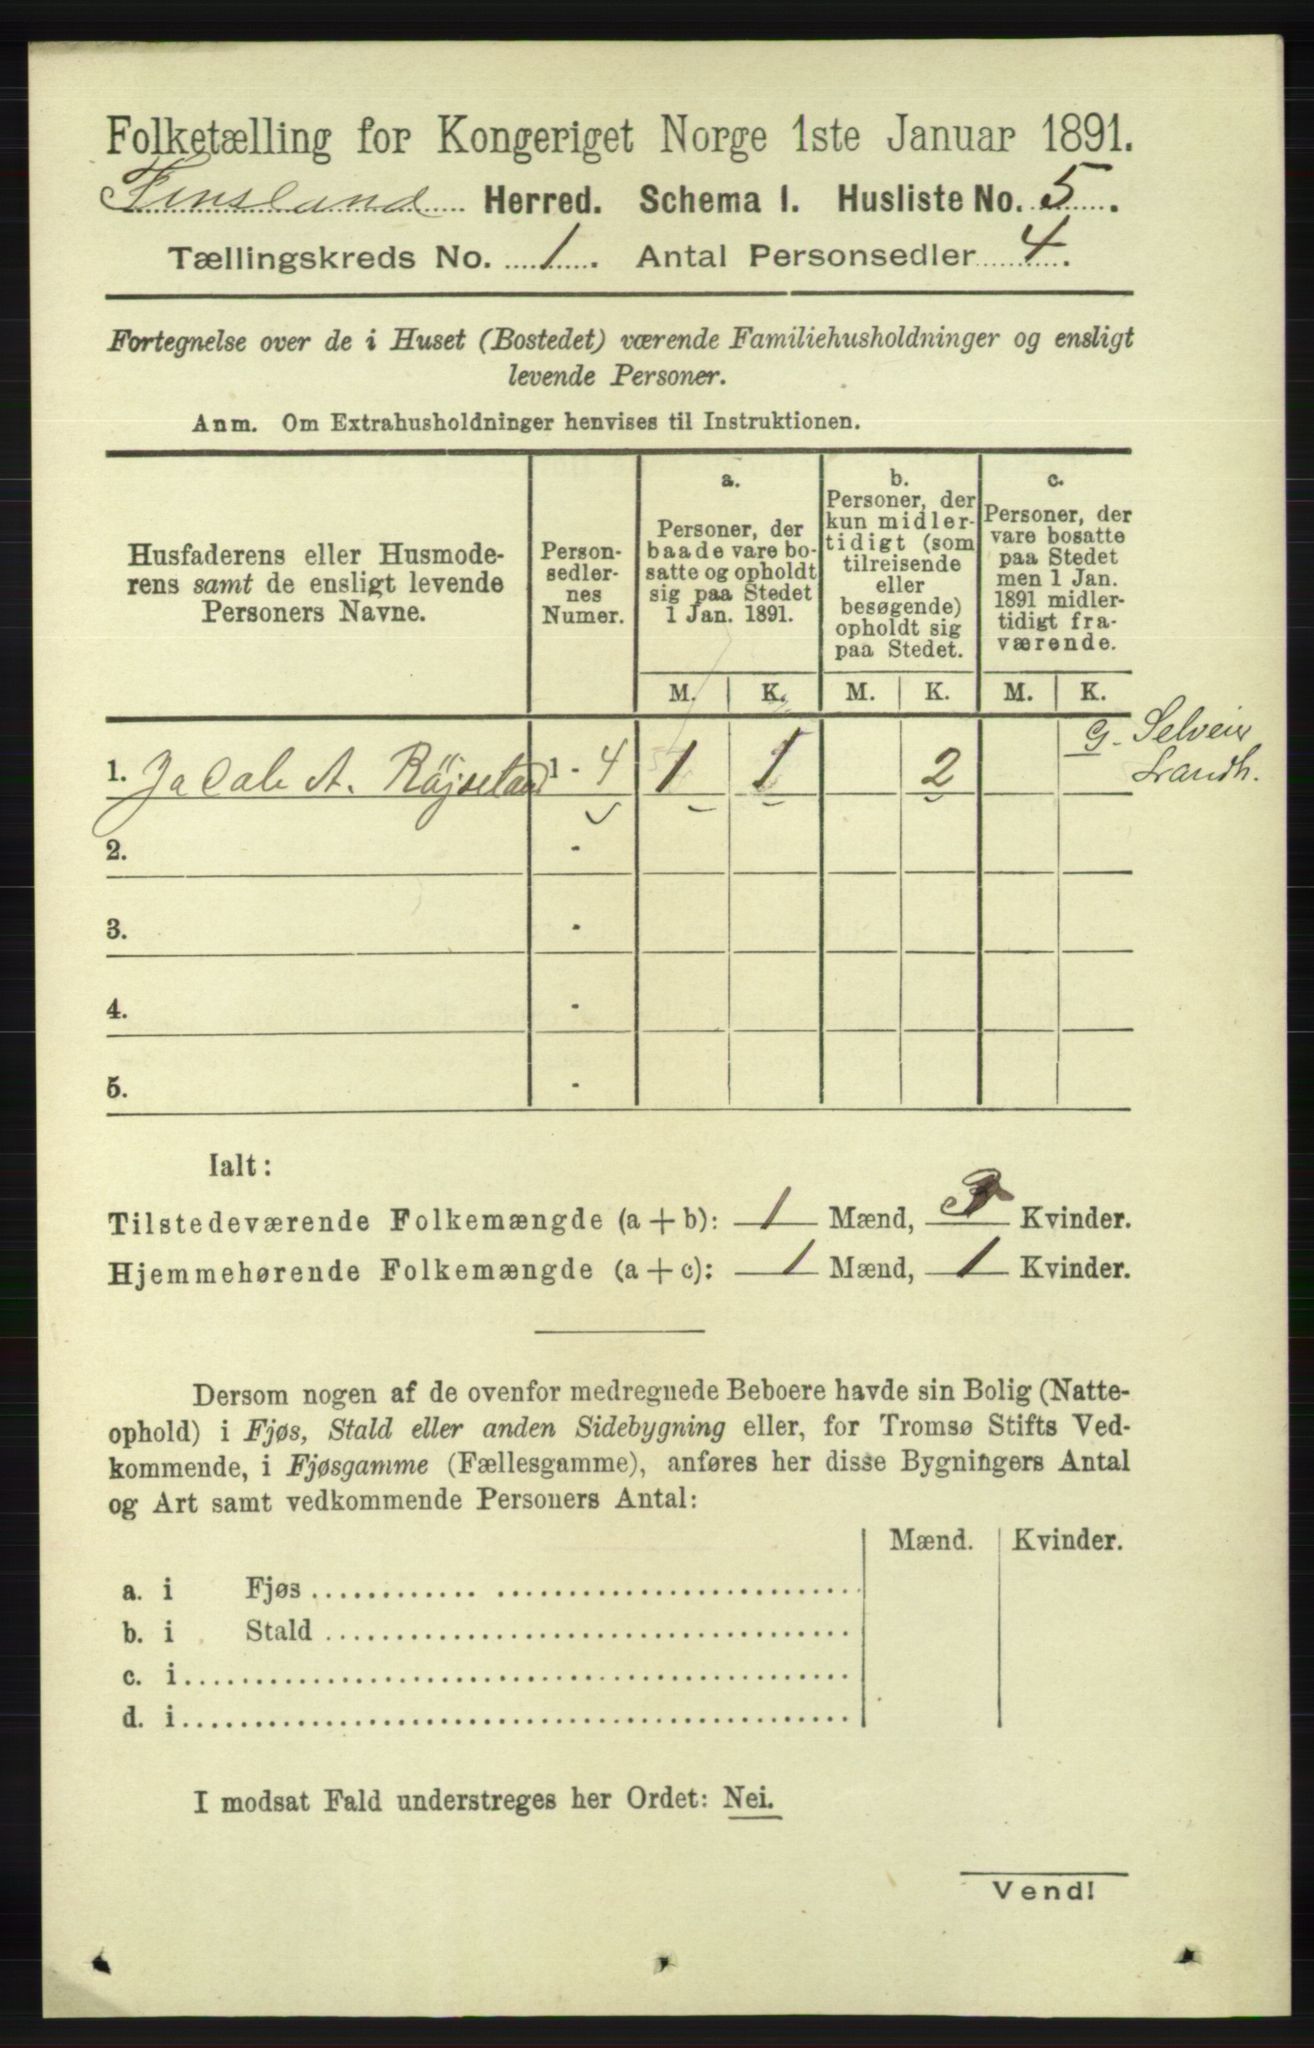 Folketælling for Kongeriget Norge 1ste Januar 1891.
Finsland Herred. Schema I. Husliste No. 5.
Tællingskreds No. 1. Antal Personsedler 4.
Fortegnelse over de i Huset (Bostedet) værende Familiehusholdninger og ensligt
levende Personer.
Anm. Om Extrahusholdninger henvises til Instruktionen.
Husfaderens eller Husmode-
rens samt de ensligt levende
Personers Navne.
Person-
sedler-
nes
Numer.
a.
Personer, der
baade vare bo-
satte og opholdt
sig paa Stedet
1 Jan. 1891.
b.
Personer, der
kun midler-
tidigt (som
tilreisende
eller
besøgende)
opholdt sig
paa Stedet.
c.
Personer, der
vare bosatte
paa Stedet
men 1 Jan.
1891 midler-
tidigt fra-
værende.
M. K. M. K. M. K.
1. Jacob A. Røjseland 1 - 4 1 1 2 G. Selveier
Landh.
2. -
3. -
4. -
5. -
Ialt:
Tilstedeværende Folkemængde (a + b): 1 Mænd, 3 Kvinder.
Hjemmehørende Folkemængde (a + c): 1 Mænd, 1 Kvinder.
Dersom nogen af de ovenfor medregnede Beboere havde sin Bolig (Natte-
ophold) i Fjøs, Stald eller anden Sidebygning eller, for Tromsø Stifts Ved-
kommende, i Fjøsgamme (Fællesgamme), anføres her disse Bygningers Antal
og Art samt vedkommende Personers Antal:
Mænd. Kvinder.
a. i Fjøs
b. i Stald
c. i
d. i
I modsat Fald understreges her Ordet: Nei.
Vend!